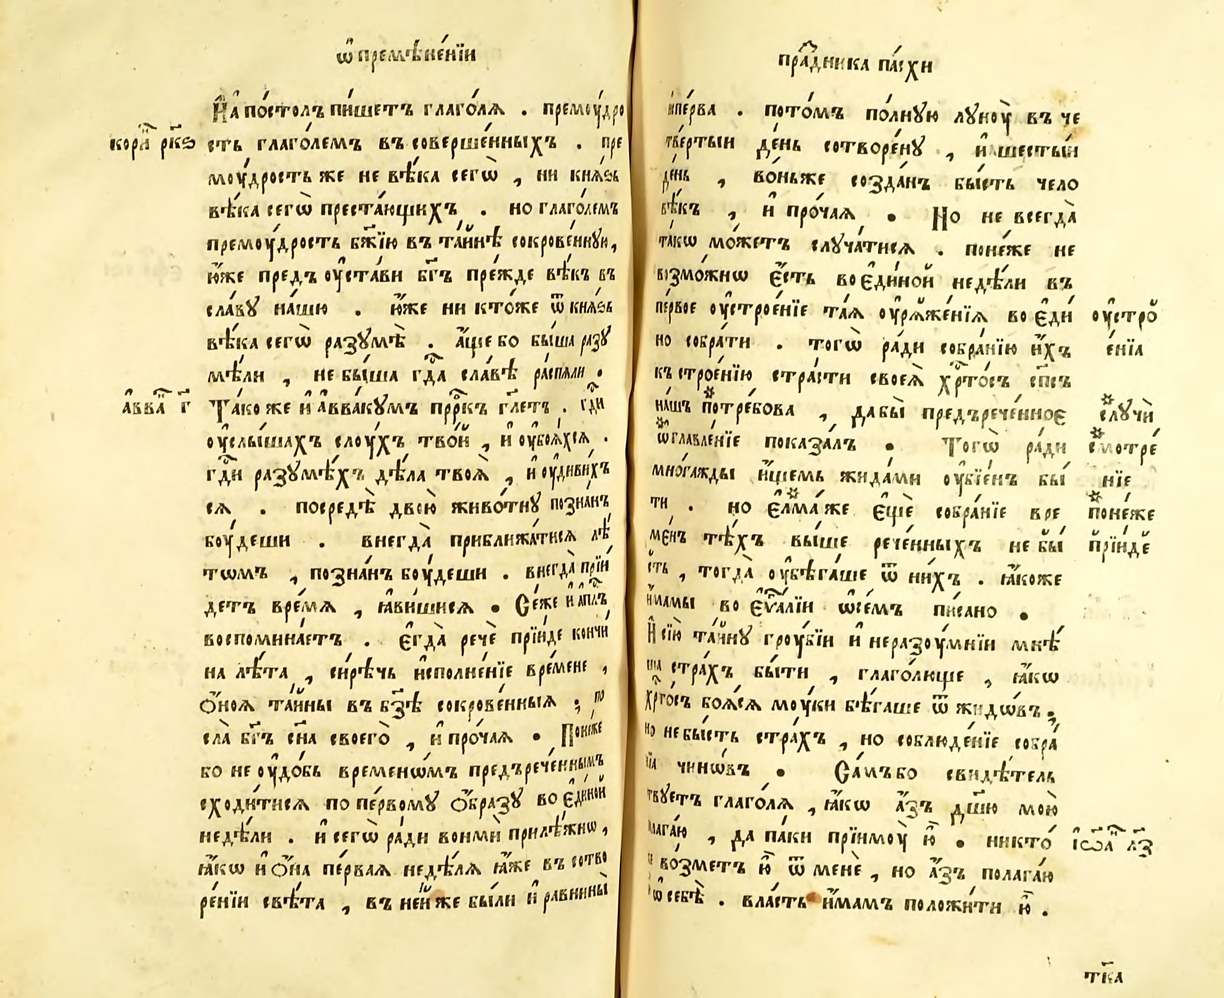 ѡ҆ премѣне́нїи
И҆ а҆по́столъ пи́шетъ глаго́лѧ . премоу́дро
сть глаго́лемъ въ соверше́нныхъ . пре
моу́дрость же не вѣ́ка сегѡ̀ , ни кнѧ́ѕь
вѣ́ка сегѡ̀ престаю́щихъ . но глаго́лемъ
премоу́дрость бж҃їю въ та́йнѣ сокрове́ннꙋи,
ю҆́же предъ оу҆ста́ви бг҃ъ пре́жде вѣ́къ въ
сла́вꙋ на́шю . ю҆́же ни кто́же ѿ кнѧ́ѕь
вѣ́ка сегѡ̀ разꙋмѣ̀ . а҆́ще бо бы́ша разꙋ
мѣ́ли , не бы́ша гдⷭ҇а сла́вѣ распѧли .
Та́ко же и҆ а҆ввакꙋмъ прⷪ҇ркъ гл҃етъ . гдⷭ҇и
оу҆слы́шахъ слоу́хъ тво́й , и҆ оу҆боѧ́хсѧ .
гдⷭ҇и разꙋмѣ́хъ дѣ́ла твоѧ̀ , и҆ оу҆диви́хъ
сѧ . посредѣ̀ двою̀ живо́тнꙋ позна́нъ
боу́деши . внегда̀ приближа́тисѧ лѣ́
тѡмъ , позна́нъ боу́деши . внегда̀ прїи́
детъ вре́мѧ , ꙗ҆ви́шисѧ . Се́же и҆ а҆пⷭ҇лъ
воспомина́етъ . є҆гда̀ речѐ прїи́де кончи́
на лѣ́та , си́рѣчь и҆сполне́нїе вре́мене ,
ѻ҆́ноѧ та́йны въ бз҃ѣ сокрове́нныѧ ; по
сла̀ бг҃ъ сн҃а своего̀ , и҆ про́чаѧ . Поне́же
бо не оу҆до́бь временѡ́мъ предърече́ннымъ
сходи́тисѧ по пе́рвомꙋ ѻ҆́бразꙋ во є҆ди́ной
недѣ́ли . и҆ сегѡ̀ ра́ди вонми̏ прилѣ́жнѡ ,
ꙗ҆́кѡ и҆ ѻ҆́на пе́рваѧ недѣ́лѧ ꙗ҆́же въ сотво
ре́нїи свѣ́та , въ не́й же бы́ли и҆ ра́внины̀
кори́нⷴ҇ рк҃ѕ
а҆вва́кⷦ҇ г҃
пра́здника па́схи
и҆пе́рва . пото́мъ по́лнꙋю лꙋноу̀ въ че
тве́ртыи де́нь сотворе́нꙋ , и҆ шесты́и
де́нь , во́ньже созда́нъ бы́сть чело
вѣ́къ , и҆ про́чаѧ . Но не всегда̀
та́кѡ мо́жетъ слꙋча́тисѧ . поне́же не
возмо́жнѡ є҆́сть во є҆ди́ной недѣ́ли въ
первое оу҆строе́нїе та́ѧ оу҆рѧже́нїѧ во є҆ди́
но собра́ти . тогѡ̀ ра́ди собра́нїю и҆́хъ
къ строе́нїю стра́сти своеѧ̀ хрⷭ҇то́съ сп҃съ
на́шъ потре́бова , дабы̀ предърече́нное
ѡ҆главле́нїе показа́лъ . Тогѡ̀ ра́ди
мно́гажды и҆́щемь жида́ми оу҆бїе́нъ бы́
ти . но є҆лма́же є҆щѐ собра́нїе вре
ме́нъ тѣ́хъ вы́ше рече́нныхъ не бы̀
сть , тогда̀ оу҆бѣга́ше ѿ ни́хъ . ꙗ҆́коже
и҆́мамы во є҆ѵⷢ҇а́лїи ѡ҆се́мъ пи́сано .
И҆ сїю̀ та́йнꙋ гроу́бїи и҆ неразоу́мнїи мнѣ́
ша стра́хъ бы́ти , глаго́люще , ꙗ҆́кѡ
хрⷭ҇то́съ боѧ́сѧ моу́ки бѣ́гаше ѿ жидѡ́въ ,
но не бы́сть стра́хъ , но соблюде́нїе собра́
нїѧ чинѡ́въ . Са́мъ бо свидѣ́тель
твꙋетъ глаго́лѧ , ꙗ҆́кѡ а҆́зъ дш҃ю мою̀
полага́ю , да па́ки прїимоу̀ ю҆̀ . никто́
же во́зметъ ю҆̀ ѿ менѐ , но а҆́зъ полага́ю
ю҆̀ ѡ҆ себѣ̀ . вла́сть и҆́мамъ положи́ти ю҆̀ .
оу҆стро
е́нїа
слꙋчи́
смотре́
нїе
поне́же
прїи́де
і҆ѡа́ⷩ҇ л҃з
тка